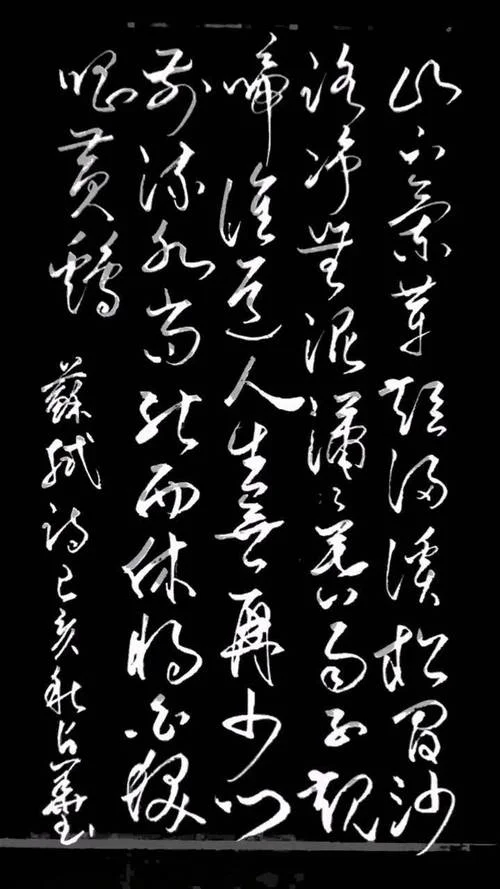 山下蘭芽短浸溪松間沙
路淨無泥瀟瀟暮雨子規
啼誰道人生無再少門
前流水尚能西休將白髮
唱黃鷄
蘇軾詩己亥秋